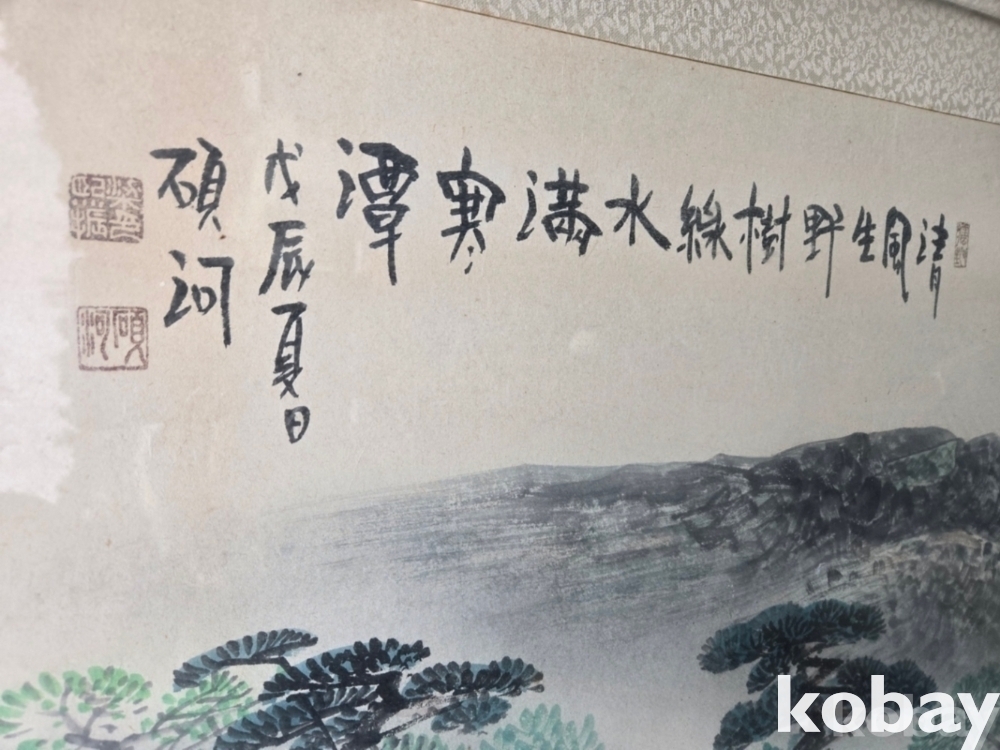 清風生野樹綠水滿寒潭
戊辰夏日
碩河
碩河
kobay